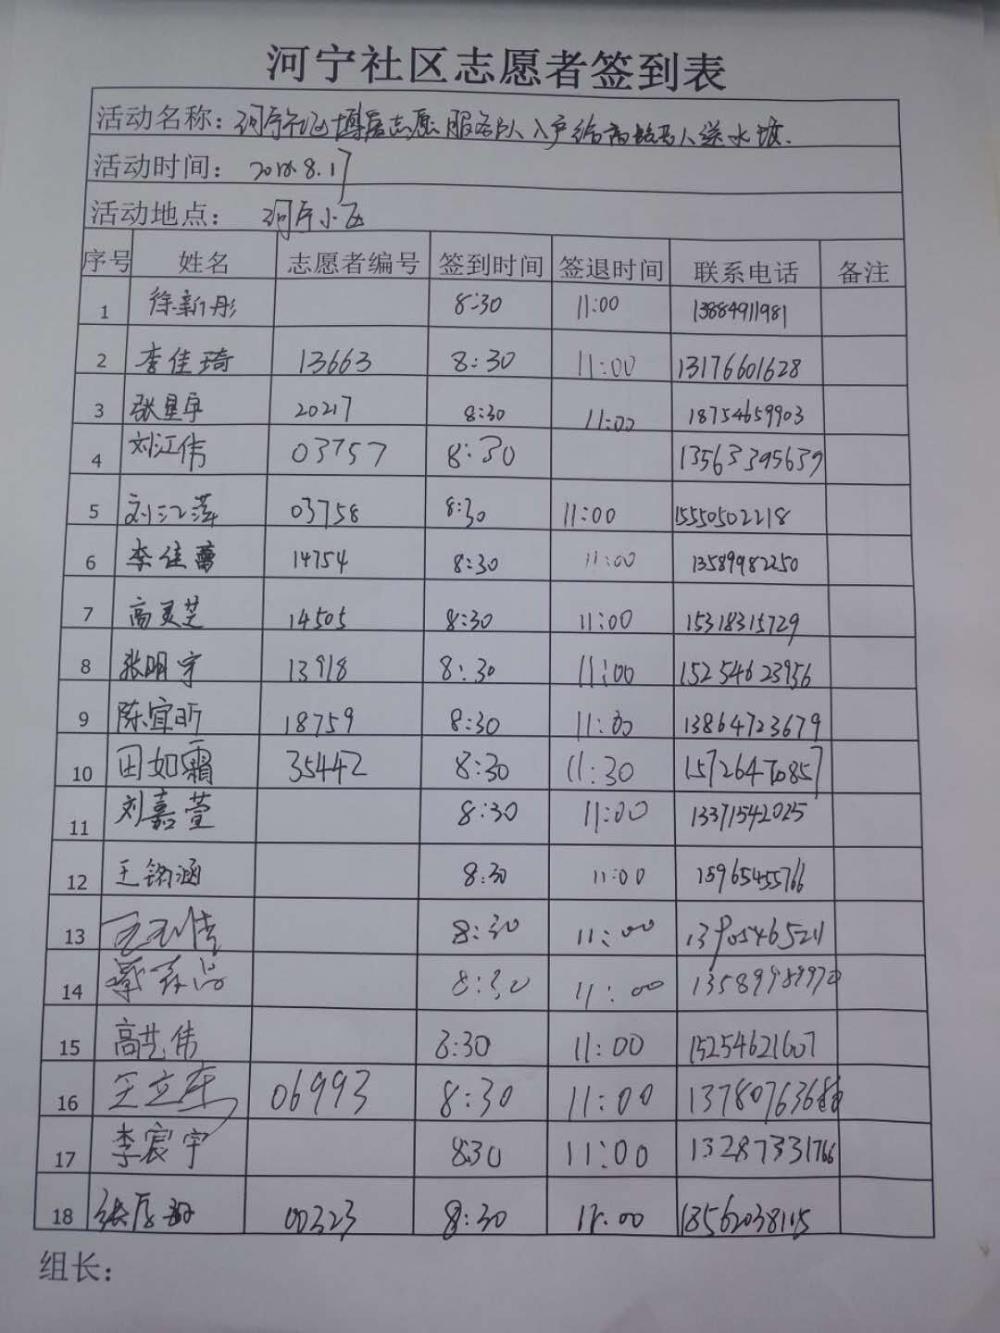 河宁社区志愿者签到表
活动名称：河宁社区博爱志愿服务队入户给高龄老人送水饺.
活动时间： 2018.8.17
活动地点： 河宁小区
序号 姓名 志愿者编号 签到时间 签退时间 联系电话 备注
1 徐新彤 8:30 11:00 13884911981
2 李佳琦 13663 8:30 11:00 13176601628
3 张星宇 20217 8:30 11:00 18754659903
4 刘江伟 03757 8:30 13563395639
5 刘江萍 03758 8:30 11:00 15550502218
6 李佳蕾 14754 8:30 11:00 13589982250
7 高灵芝 14505 8:30 11:00 15318315729
8 张明宇 13918 8:30 11:00 15254623956
9 陈宜昕 18759 8:30 11:00 13864723679
10 田如霜 35442 8:30 11:30 15726470857
11 刘嘉萱 8:30 11:00 13371542025
12 王铭涵 8:30 11:00 15965455766
13 8:30 11:00 13905465211
14 8:30 11:00
15 高艺伟 8:30 11:00 15254621607
16 王立东 06993 8:30 11:00
17 李宸宇 8:30 11:00 13287331766
18 00323 8:30 11:00
组长：